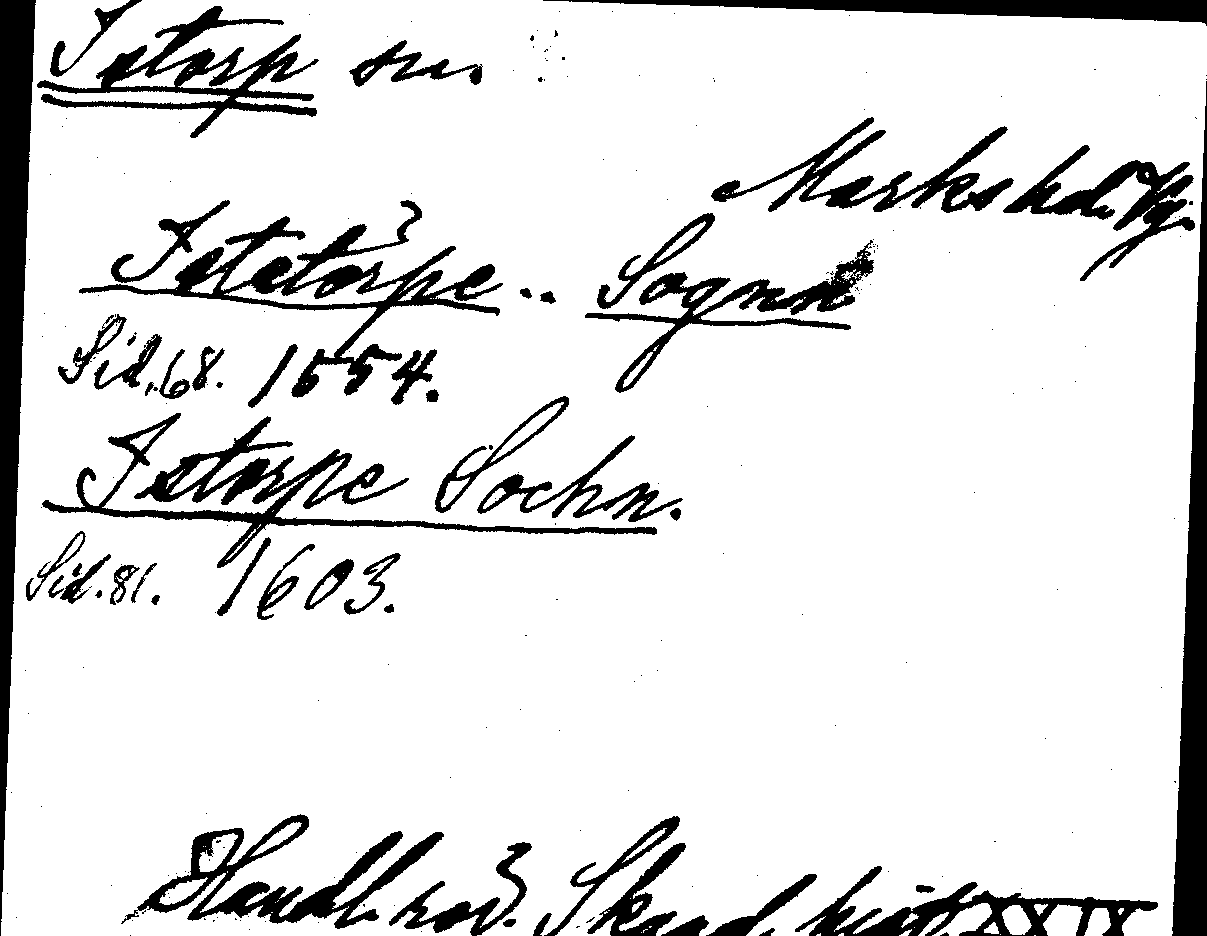 Istorp sn.
Marks hd. Vg.
Istetorpe .. Sognn
Sid. 68. 1554.
Istorpe Sochn.
Sid. 81. 1603.
Handl. rör. Skand. hist. XXIX